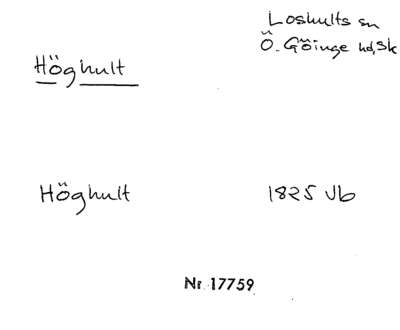 Loshults sn
Ö. Göinge hd, Sk
Höghult
Höghult 1825 Jb
Nr 17759